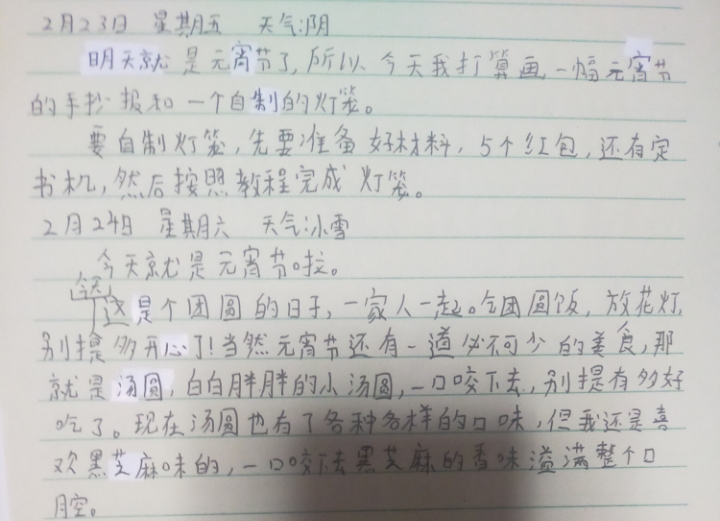 2月23日 星期五 天气:阴
明天就是元宵节了,所以今天我打算画一幅元宵节
的手抄报和一个自制的灯笼。
要自制灯笼,先要准备好材料,5个红包,还有定
书机,然后按照教程完成灯笼。
2月24日 星期六 天气:冰雪
今天就是元宵节啦。
今天
这是个团圆的日子,一家人一起吃团圆饭,放花灯,
别提多开心了!当然元宵节还有一道必不可少的美食,那
就是汤圆,白白胖胖的小汤圆,一口咬下去,别提有多好
吃了。现在汤圆也有了各种各样的口味,但我还是喜
欢黑芝麻味的,一口咬下去黑芝麻的香味溢满整个口
腔。